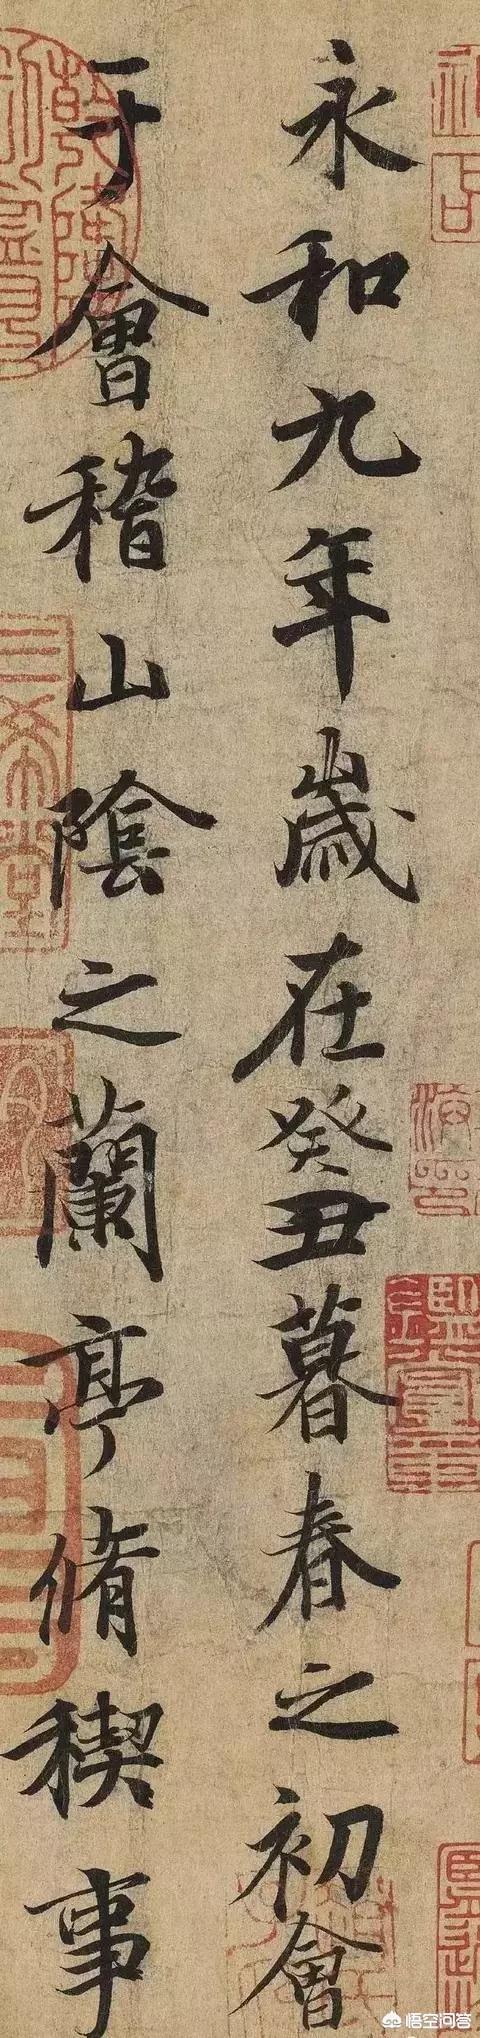 永和九年歲在癸丑暮春之初會
于會稽山陰之蘭亭脩稧事
悟空问答